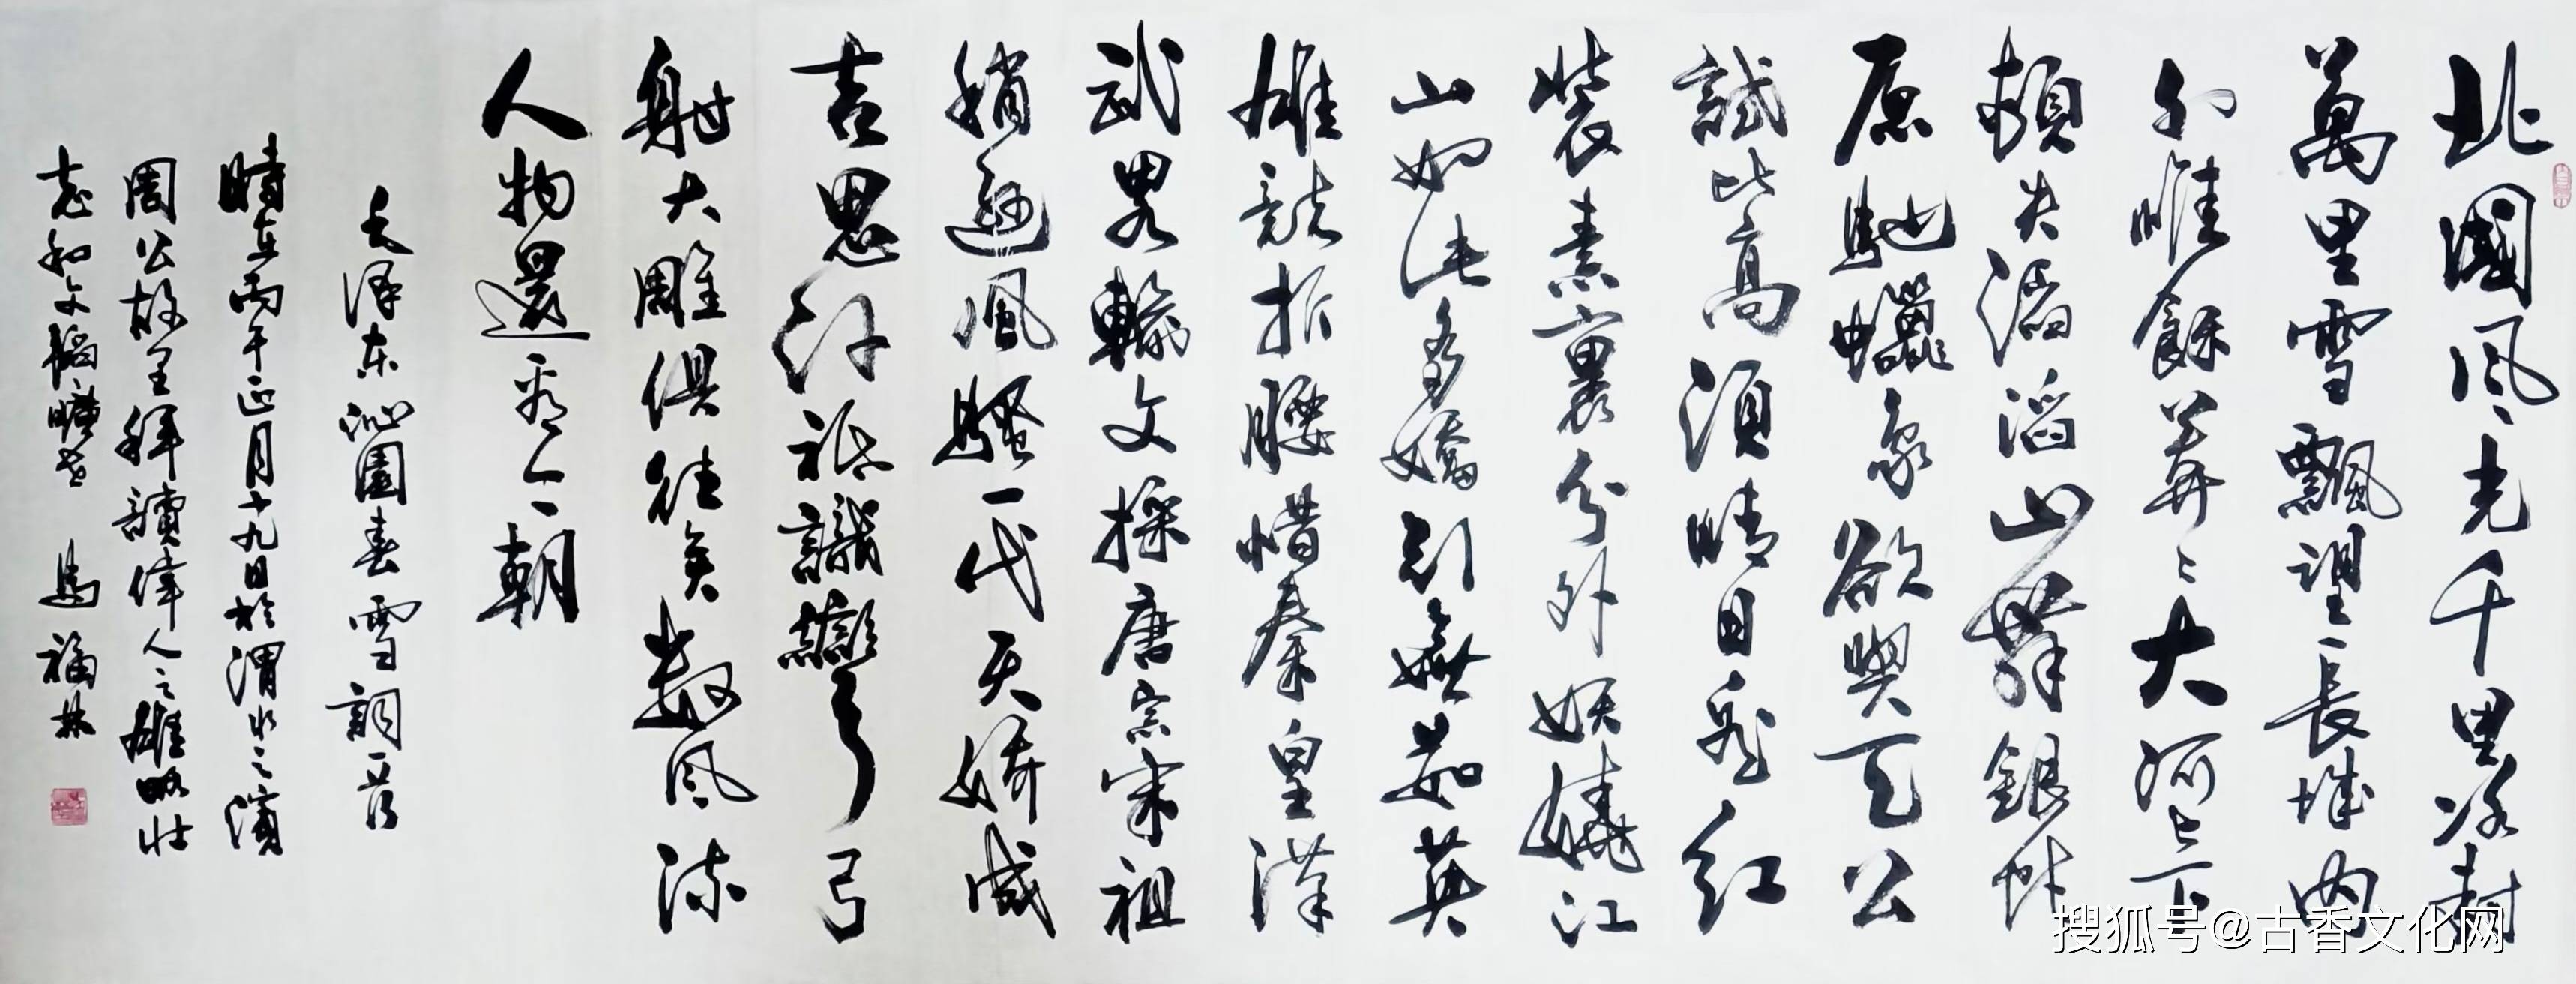 北國風光千里冰封
萬里雪飄望長城內
外唯餘莽莽大河上下
頓失滔滔山舞銀蛇
原馳蠟象欲與天公
試比高須晴日看紅
裝素裹分外妖嬈江
山如此多嬌引無數英
雄競折腰惜秦皇漢
武略輸文採唐宗宋祖
稍遜風騷一代天驕成
吉思汗祇識彎弓
射大雕俱往矣數風流
人物還看今朝
毛澤東沁園春雪詞一首
時在丙午正月十九日於渭水之濱
周公故里拜讀偉人之雄略壯
志和文韜曠世 馬福林
搜狐号@古香文化网